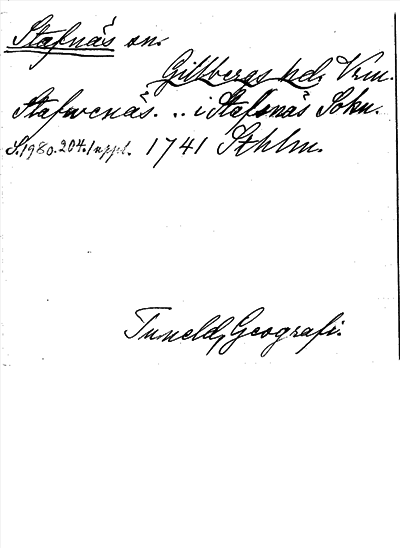 Stafnäs sn.
Gillbergs hd. Vrm.
Stafwenäs... i Stafsnäs Sokn.
S. 1980. 204. 1 uppl. 1741 Sthlm.
Tuneld, Geografi.